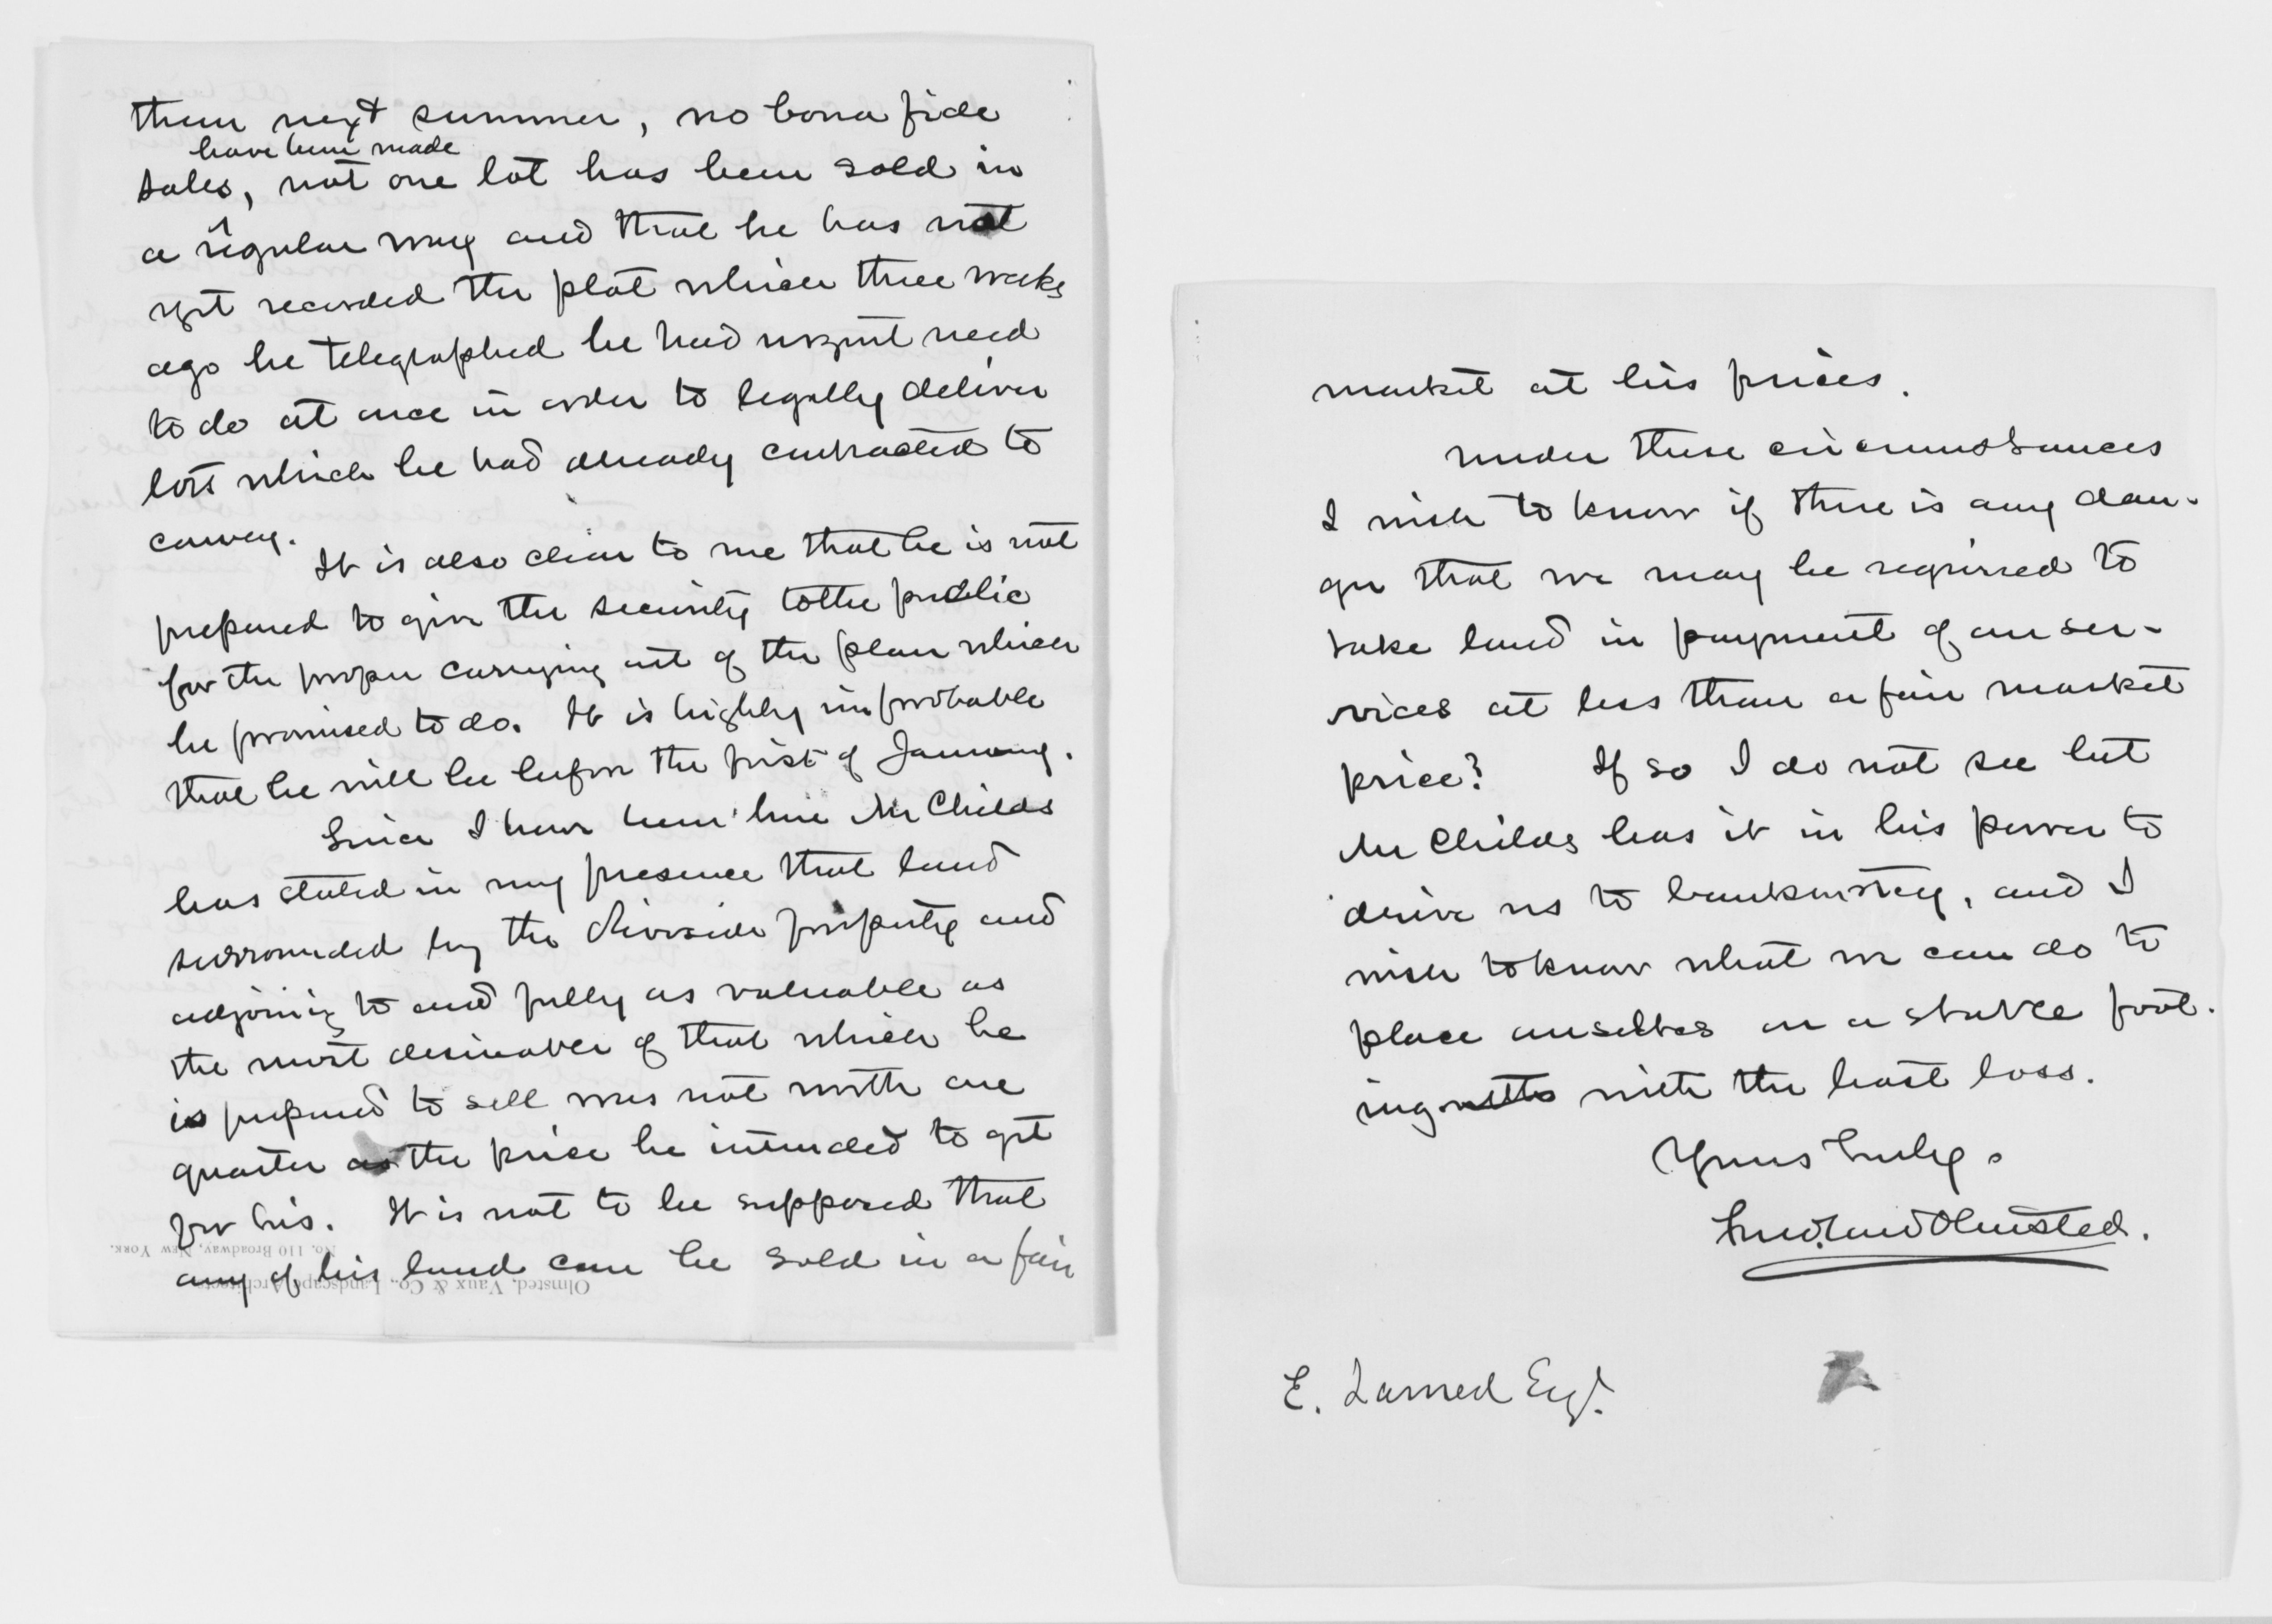 than next summer, no bona fide
have been made
sales, not one lot has been sold in
a regular way and that he has not
yet recorded the plat which three weeks
ago he telegraphed he had urgent need
to do at once in order to legally deliver
lots which he had already contracted to
convey.
It is also clear to me that he is not
prepared to give the security to the public
for the proper carrying out of the plan which
he promised to do. It is highly improbable
that he will be before the first of January.
Since I have been here Mr Childs
has stated in my presence that land
surrounded by the Riverside property and
adjoining to and fully as valuable as
the most desirable of that which he
is prepared to sell was not worth one
quarter as the price he intended to get
for his. It is not to be supposed that
any of his land can be sold in a fair
No. 110 Broadway, New York.
Olmsted, Vaux & Co., Landscape Architects
market at his prices.
Under these circumstances
I wish to know if there is any dan-
ger that we may be required to
take land in payment of our ser-
vices at less than a fair market
price? If so I do not see but
Mr Childs has it in his power to
drive us to bankruptcy, and I
wish to know what we can do to
place ourselves on a stable foot-
ing with the least loss.
Yours truly.
Fred. Law Olmsted.
E. Larned Esq.